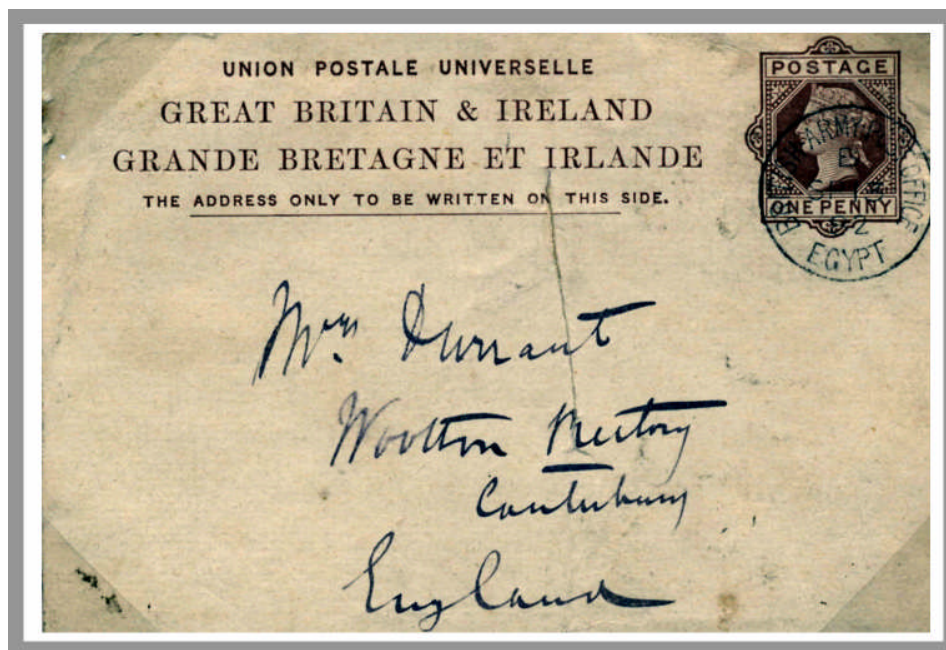 UNION POSTALE UNIVERSELLE
GREAT BRITAIN & IRELAND
GRANDE BRETAGNE ET IRLANDE
THE ADDRESS ONLY TO BE WRITTEN ON THIS SIDE.
POSTAGE
ONE PENNY
ARMY OFFICE
EGYPT
Mrs. Durrant
Wootton Rectory
Canterbury
England